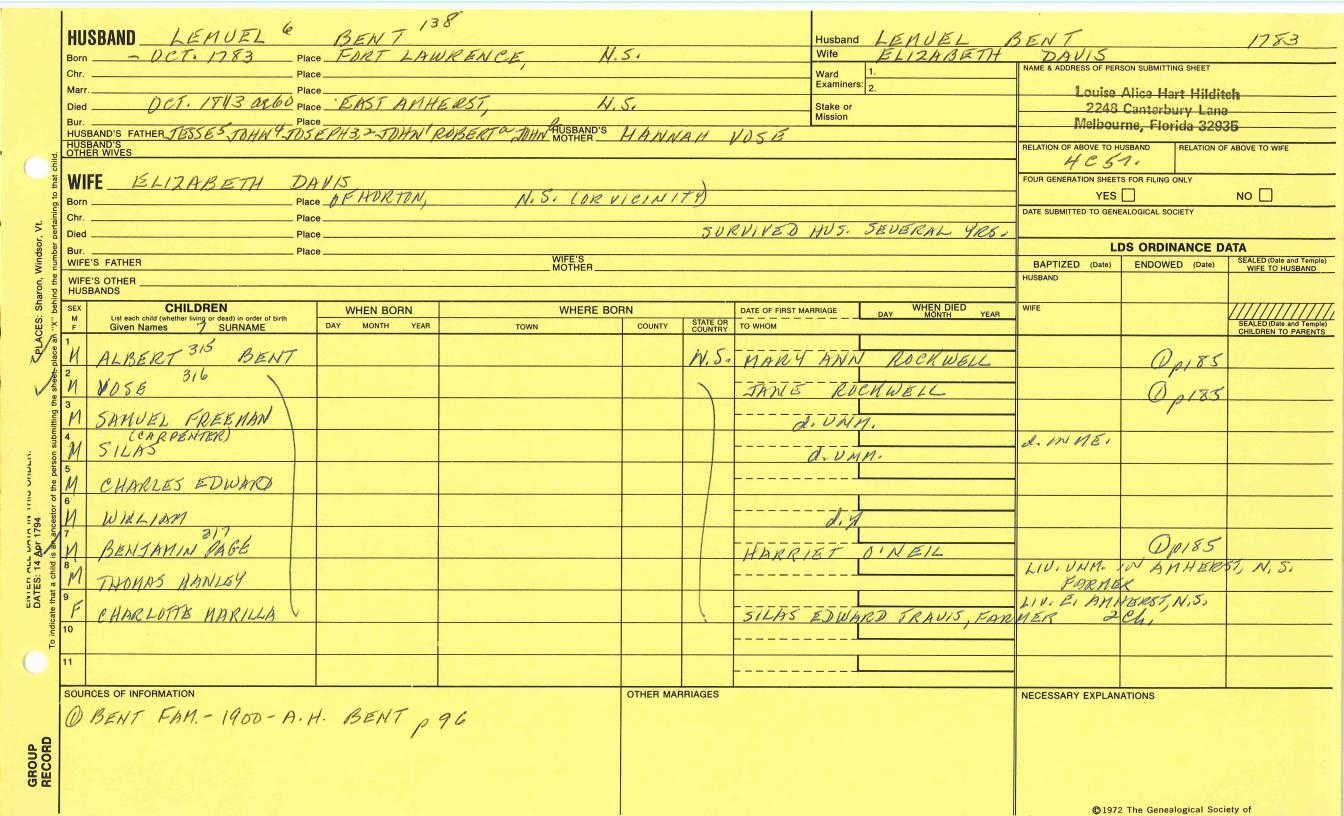 HUSBAND LEMUEL 6 BENT 138
Born - OCT. 1783 Place FORT LAWRENCE, N.S.
Chr. Place
Marr. Place
Died OCT. 1843 ae 60 Place EAST AMHERST, N.S.
Bur. Place
HUSBAND'S FATHER JESSE5, JOHN4, JOSEPH3,2 JOHN1 ROBERTa JOHN HUSBAND'S MOTHER HANNAH VOSE
HUSBAND'S OTHER WIVES
WIFE ELIZABETH DAVIS
Born Place OF HORTON, N.S. (OR VICINITY)
Chr. Place
Died Place SURVIVED HUS. SEVERAL YRS.
Bur. Place
WIFE'S FATHER WIFE'S MOTHER
WIFE'S OTHER HUSBANDS
Husband LEMUEL BENT 1783
Wife ELIZABETH DAVIS
Ward Examiners: 1. 2.
Stake or Mission
NAME & ADDRESS OF PERSON SUBMITTING SHEET
Louise Alice Hart Hilditch
2248 Canterbury Lane
Melbourne, Florida 32935
RELATION OF ABOVE TO HUSBAND RELATION OF ABOVE TO WIFE
4C5r.
FOUR GENERATION SHEETS FOR FILING ONLY
YES NO
DATE SUBMITTED TO GENEALOGICAL SOCIETY
LDS ORDINANCE DATA
BAPTIZED (Date) ENDOWED (Date) SEALED (Date and Temple) WIFE TO HUSBAND
HUSBAND
WIFE
SEALED (Date and Temple) CHILDREN TO PARENTS
SEX M F
CHILDREN
List each child (whether living or dead) in order of birth
Given Names 7 SURNAME
WHEN BORN
DAY MONTH YEAR
WHERE BORN
TOWN COUNTY STATE OR COUNTRY
DATE OF FIRST MARRIAGE
TO WHOM
WHEN DIED
DAY MONTH YEAR
1 M ALBERT 315 BENT N.S. MARY ANN ROCKWELL ① p185
2 M VOSE 316 JANE ROCKWELL ① p185
3 M SAMUEL FREEMAN d. UNM.
4 M (CARPENTER) SILAS d. UNM. d. IN ME.
5 M CHARLES EDWARD
6 M WILLIAM d.y
7 M BENJAMIN PAGE 317 HARRIET O'NEIL ① p185
8 M THOMAS HANLEY LIV. UNM. IN AMHERST, N.S. FARMER
9 F CHARLOTTE MARILLA SILAS EDWARD TRAVIS, FARMER LIV. E. AMHERST, N.S. 2 Ch.
10
11
SOURCES OF INFORMATION
① BENT FAM. - 1900 - A.H. BENT p 96
OTHER MARRIAGES
NECESSARY EXPLANATIONS
©1972 The Genealogical Society of
PLACES: Sharon, Windsor, Vt.
ENTER ALL DATA IN THIS ORDER:
DATES: 14 Apr 1794
To indicate that a child is an ancestor of the person submitting the sheet, place an "X" behind the number pertaining to that child.
GROUP RECORD